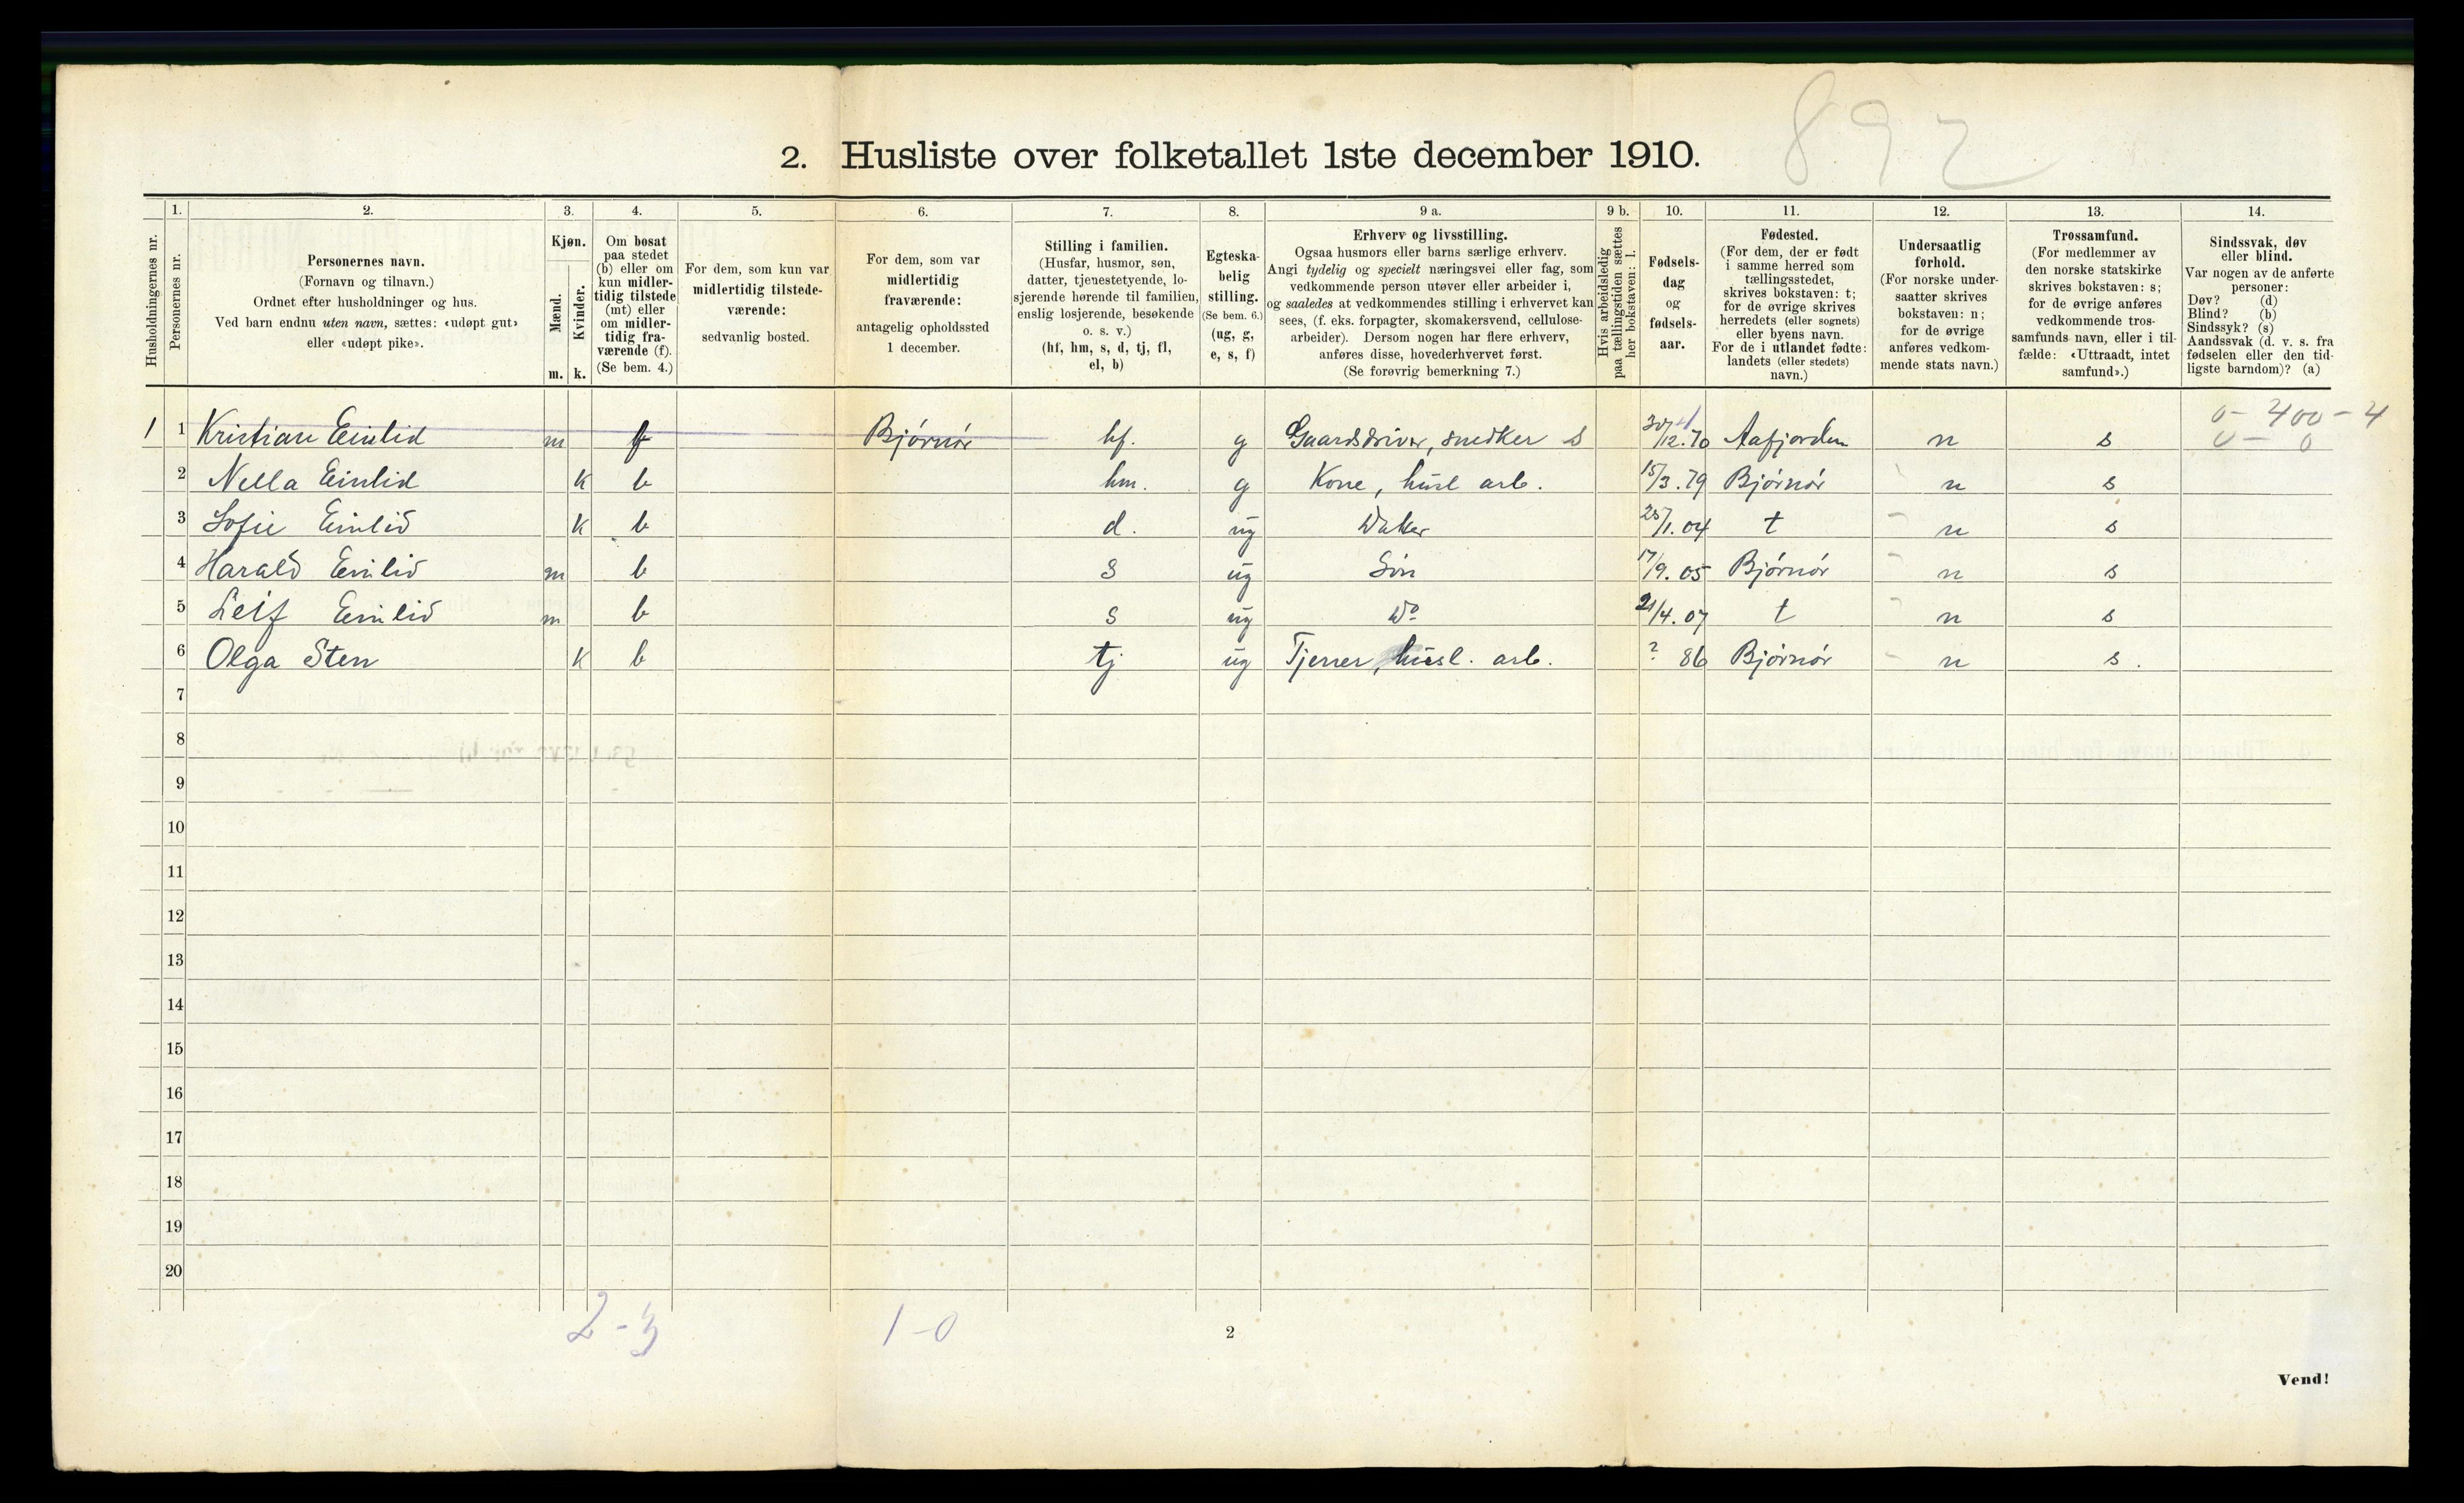 892
2. Husliste over folketallet 1ste december 1910.
1. 2. 3. 4. 5. 6. 7. 8. 9 a. 9 b. 10. 11. 12. 13. 14.
Husholdningernes nr.
Personernes nr.
Personernes navn.
(Fornavn og tilnavn.)
Ordnet efter husholdninger og hus.
Ved barn endnu uten navn, sættes: «udøpt gut»
eller «udøpt pike».
Kjøn.
Mænd.
Kvinder.
m. k.
Om bosat
paa stedet
(b) eller om
kun midler-
tidig tilstede
(mt) eller
om midler-
tidig fra-
værende (f).
(Se bem. 4.)
For dem, som kun var
midlertidig tilstede-
værende:
sedvanlig bosted.
For dem, som var
midlertidig
fraværende:
antagelig opholdssted
1 december.
Stilling i familien.
(Husfar, husmor, søn,
datter, tjenestetyende, lo-
sjerende hørende til familien,
enslig losjerende, besøkende
o. s. v.)
(hf, hm, s, d, tj, fl,
el, b)
Egteska-
belig
stilling.
(Se bem. 6.)
(ug, g,
e, s, f)
Erhverv og livsstilling.
Ogsaa husmors eller barns særlige erhverv.
Angi tydelig og specielt næringsvei eller fag, som
vedkommende person utøver eller arbeider i,
og saaledes at vedkommendes stilling i erhvervet kan
sees, (f. eks. forpagter, skomakersvend, cellulose-
arbeider). Dersom nogen har flere erhverv,
anføres disse, hovederhvervet først.
(Se forøvrig bemerkning 7.)
Hvis arbeidsledig
paa tællingstiden sættes
her bokstaven: l.
Fødsels-
dag
og
fødsels-
aar.
Fødested.
(For dem, der er født
i samme herred som
tællingsstedet,
skrives bokstaven: t;
for de øvrige skrives
herredets (eller sognets)
eller byens navn.
For de i utlandet fødte:
landets (eller stedets)
navn.)
Undersaatlig
forhold.
(For norske under-
saatter skrives
bokstaven: n;
for de øvrige
anføres vedkom-
mende stats navn.)
Trossamfund.
(For medlemmer av
den norske statskirke
skrives bokstaven: s;
for de øvrige anføres
vedkommende tros-
samfunds navn, eller i til-
fælde: «Uttraadt, intet
samfund».)
Sindssvak, døv
eller blind.
Var nogen av de anførte
personer:
Døv? (d)
Blind? (b)
Sindssyk? (s)
Aandssvak (d. v. s. fra
fødselen eller den tid-
ligste barndom)? (a)
0 - 400 - 4
0 - 0
1 1 Kristian Einlid m f Bjørnør hf. g Gaardsdriver, snedker s 30/12.70 Aafjorden n s
2 Nella Einlid k b hm. g Kone, husl arb. 15/3.79 Bjørnør n s
3 Sofie Einlid k b d. ug Datter 25/1.04 t n s
4 Harald Einlid m b s ug Søn 17/9.05 Bjørnør n s
5 Leif Einlid m b s ug Do 21/4.07 t n s
6 Olga Sten k b tj ug Tjener, husl. arb. ? 86 Bjørnør n s.
7
8
9
10
11
12
13
14
15
16
17
18
19
20
2 - 3 1 - 0
2
Vend!